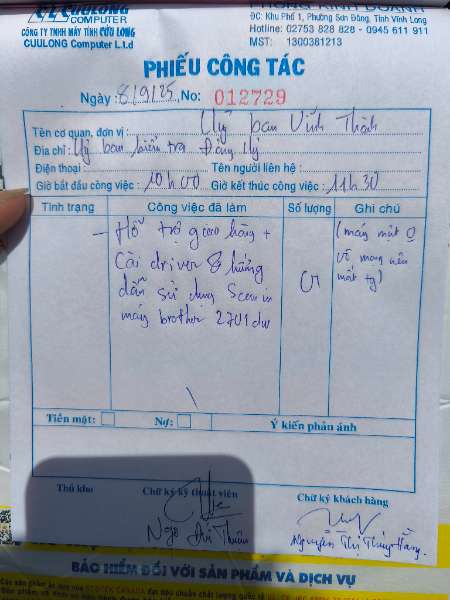 CUULONG
COMPUTER
CÔNG TY TNHH MÁY TÍNH CỬU LONG
CUULONG Computer L.t.d
PHÒNG KINH DOANH
ĐC: Khu Phố 1, Phường Sơn Đông, Tỉnh Vĩnh Long
Hotline: 02753 828 828 - 0945 611 911
MST: 1300381213
PHIẾU CÔNG TÁC
Ngày: 8/9/25, No: 012729
Tên cơ quan, đơn vị: Uỷ ban Vĩnh Thành
Địa chỉ: Uỷ ban kiểm tra Đảng Uỷ
Điện thoại: Tên người liên hệ:
Giờ bắt đầu công việc: 10h00 Giờ kết thúc công việc: 11h30
Tình trạng Công việc đã làm Số lượng Ghi chú
- Hỗ trợ giao hàng +
Cài driver & hướng
dẫn sử dụng Scan in
máy brother 2701dw
(mạng
về mạng nên
mất tg)
Tiền mặt: Nợ: Ý kiến phản ánh
Thủ kho Chữ ký kỹ thuật viên Chữ ký khách hàng
Ngô
Nguyễn Thị Thúy Hằng.
BẢO HIỂM ĐỐI VỚI SẢN PHẨM VÀ DỊCH VỤ